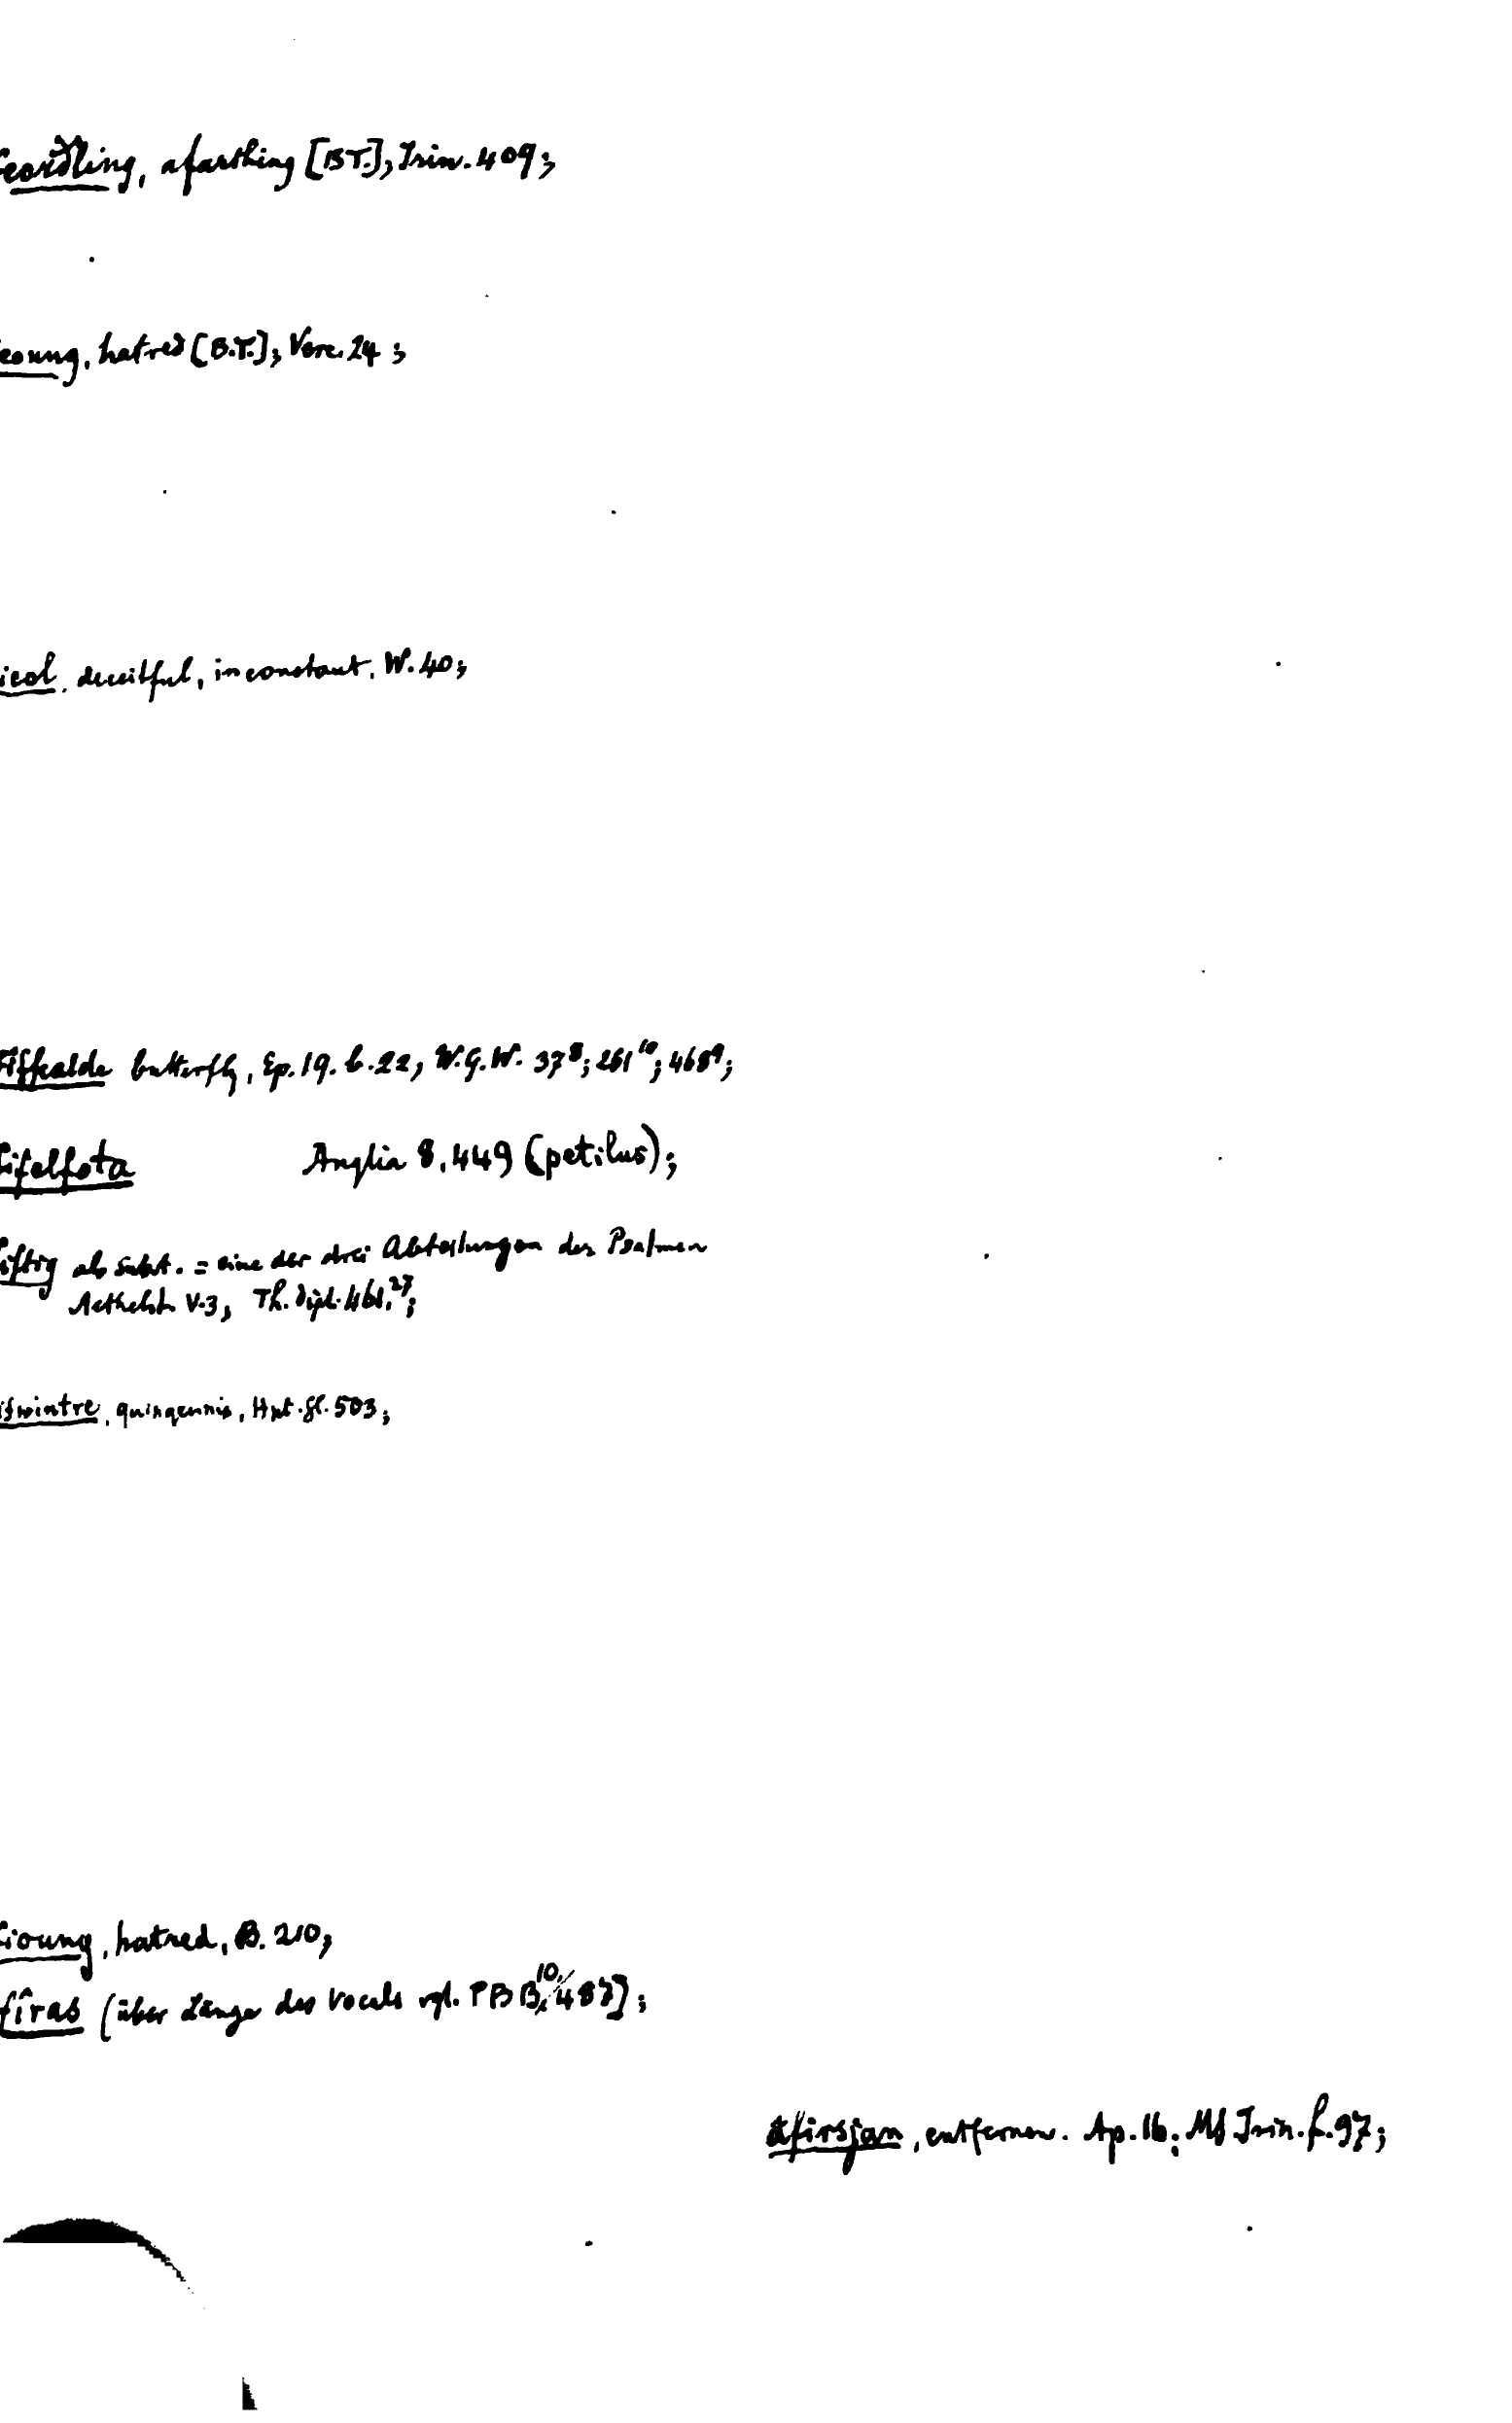 feorðling, a farthing [BT.], Trin. 409;
feoung, hatred [B.T.]; Verc. 24;
ficol, deceitful, inconstant, W. 40;
Fiffealde butterfly, Ep. 19. b. 22, W.G.W. 37⁸; 261¹⁰; 468⁹;
Fifelfota Anglia 8.449 (petilus);
fiftig als subst. = eine der drei Abteilungen der Psalmen
Aethelst. V.3, Th. dipl. 461.²⁷;
fifwintre, quinquennis, Hpt. gl. 503;
fioung, hatred, B. 210;
fîras (über Länge des Vocals vgl. PBB. 10, 487];
āfirsjan, entfernen. Ap. 16; MS Trin. f. 97;